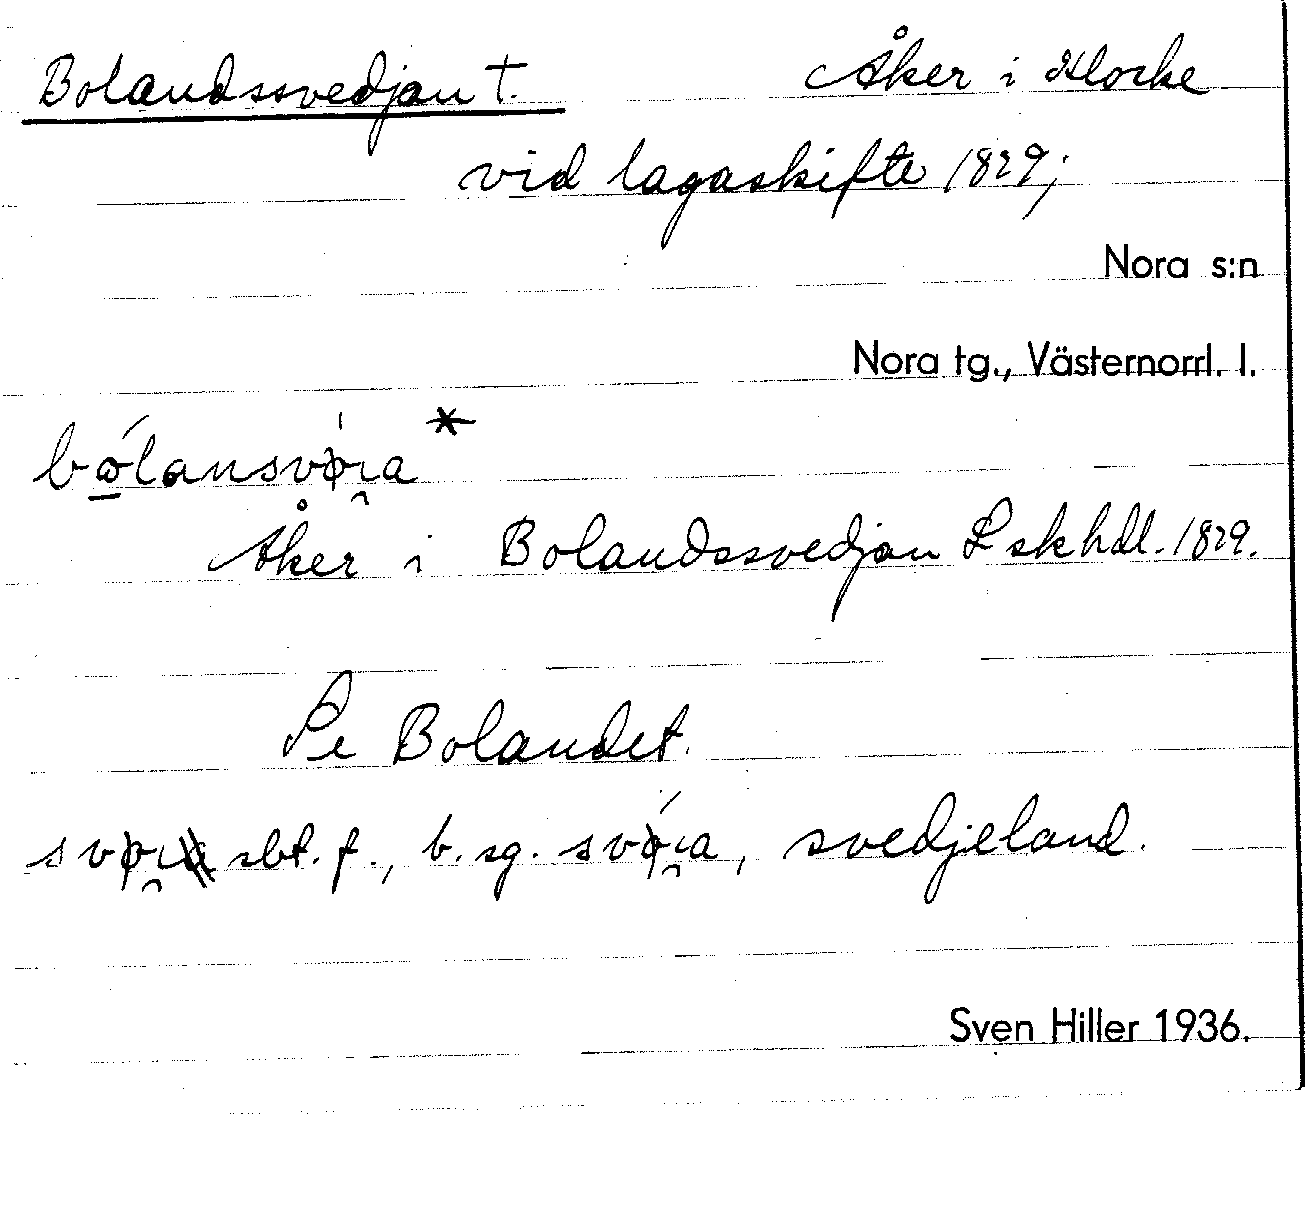 Bolandssvedjan †. Åker i Klocke
vid lagaskifte 1829;
Nora s:n
Nora tg., Västernorrl. l.
Åker i Bolandssvedjan Lskhdl. 1829.
Se Bolandet.
sbt. f., b. sg. svø̀ra, svedjeland.
Sven Hiller 1936.